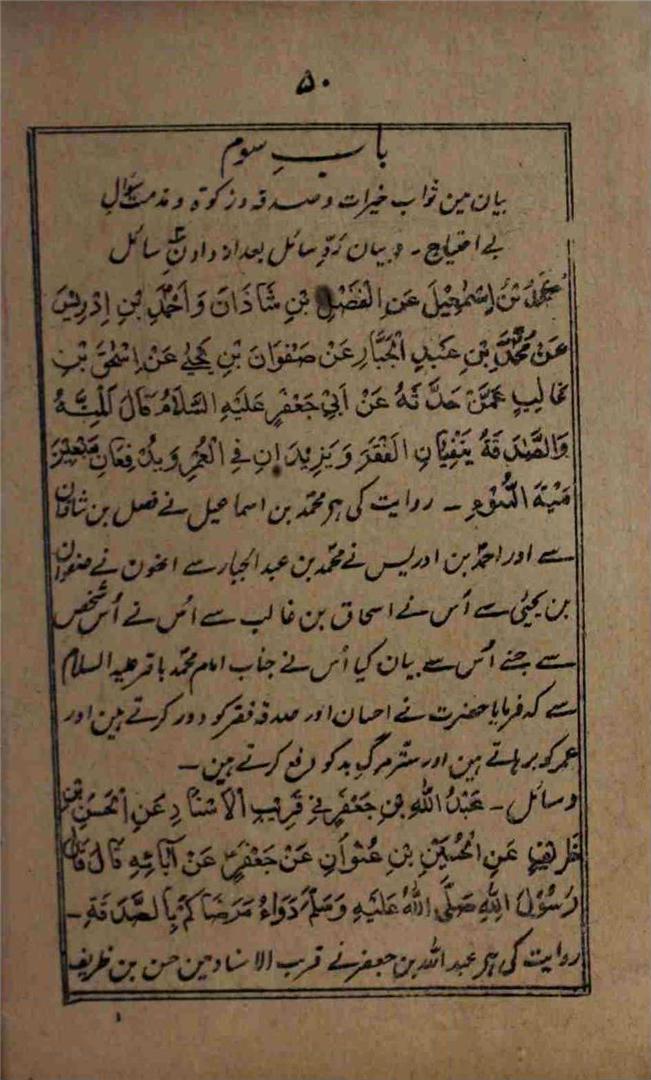 ۵۰
باب سوم
بیان مین ثواب خیرات و صدقہ و زکوٰۃ و مذمت سوال
بے احتیاج ۔ و بیان ردِّ سائل بعد از دادن سہ سائل
مُحَمَّدُ بْنُ اِسْمٰعِیْلَ عَنِ الْفَضْلِ بْنِ شَاذَانَ وَ اَحْمَدَ بْنِ اِدْرِیْسَ
عَنْ مُحَمَّدِ بْنِ عَبْدِ الْجَبَّارِ عَنْ صَفْوَانَ بْنِ یَحْیٰی عَنْ اِسْحٰقَ بْنِ
غَالِبٍ عَمَّنْ حَدَّثَهُ عَنْ اَبِیْ جَعْفَرٍ عَلَیْهِ السَّلَامُ قَالَ اَلْبِرُّ
وَالصَّدَقَةُ یَنْفِیَانِ الْفَقْرَ وَ یَزِیْدَانِ فِی الْعُمُرِ وَ یَدْفَعَانِ سَبْعِیْنَ
مِیْتَةَ السُّوْءِ ۔ روایت کی ہر محمد بن اسماعیل نے فضل بن شاذان
سے اور احمد بن ادریس نے محمد بن عبد الجبار سے اونھون نے صفوان
بن یحیٰی سے اُس نے اسحاق بن غالب سے اُس نے اُس شخص
سے جسنے اُس سے بیان کیا اُس نے جناب امام محمد باقر علیہ السلام
سے کہ فرمایا حضرت نے احسان اور صدقہ فقر کو دور کرتے ہین اور
عمر کو بڑہاتے ہین اور ستر مرگ بد کو دفع کرتے ہین ۔
وسائل ۔ عَبْدُ اللهِ بْنِ جَعْفَرٍ فِیْ قَرِیْبِ الْاِسْنَادِ عَنِ الْحَسَنِ بْنِ
ظَرِیْفٍ عَنِ الْحُسَیْنِ بْنِ عُلْوَانِ عَنْ جَعْفَرٍ عَنْ اٰبَائِهِ قَالَ قَالَ
رَسُوْلُ اللهِ صَلَّی اللهُ عَلَیْهِ وَسَلَّمَ دَوَاءُ مَرْضَاکُمْ بِالصَّدَقَةِ ۔
روایت کی ہر عبد اللہ بن جعفر نے قرب الاسناد مین حسن بن ظریف